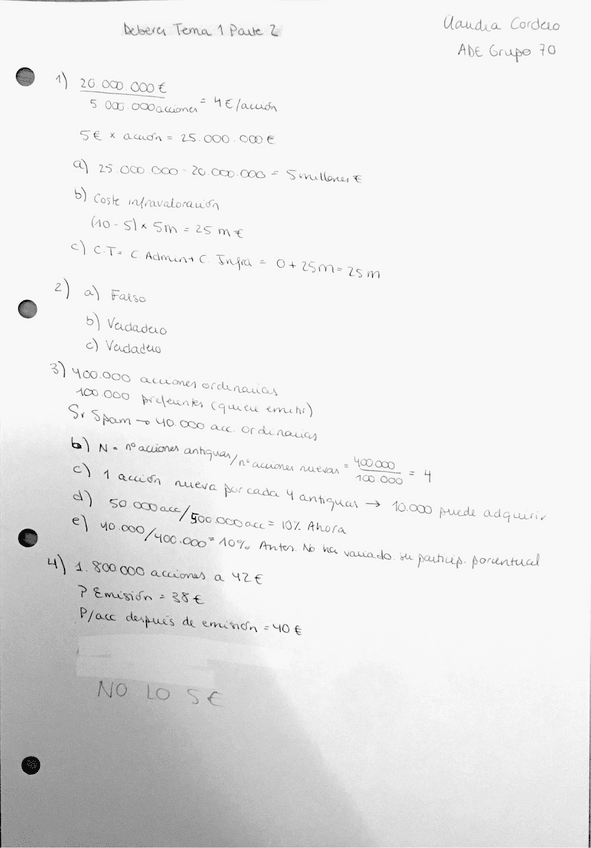 Deberes Tema 1 Parte 2
Claudia Cordero
ADE Grupo 70
1) 20 000 000 €
5 000.000 acciones = 4€/acción
5€ x acción = 25.000.000€
a) 25.000 000 - 20.000.000 = 5 millones €
b) Coste infravaloración
(10 - 5) x 5m = 25 m €
c) C.T = C Admin + C Infra = 0 + 25m = 25 m
2) a) Falso
b) Verdadero
c) Verdadero
3) 400.000 acciones ordinarias
100 000 preferentes (quiere emitir)
Sr Spam → 40.000 acc. ordinarias
b) N = nº acciones antiguas / nº acciones nuevas = 400 000 / 100 000 = 4
c) 1 acción nueva por cada 4 antiguas → 10.000 puede adquirir
d) 50 000 acc / 500.000 acc = 10% Ahora
e) 40.000/400.000 = 10% Antes. No ha variado su particip. porcentual
4) 1.800 000 acciones a 42€
P Emisión = 38€
P/acc después de emisión = 40 €
NO LO S€